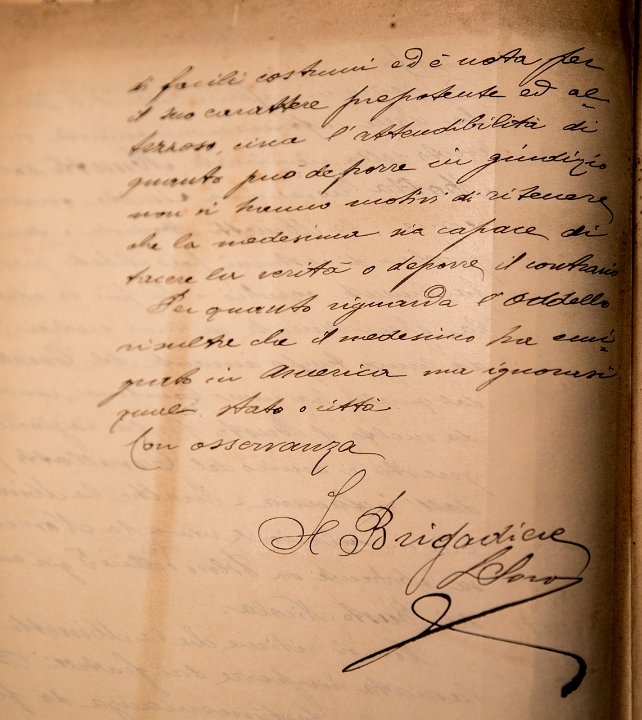 di facili costumi ed è nota per
il suo carattere prepotente ed al-
terroso, circa l'attendibilità di
quanto può deporre in giudizio
non si hanno motivi di ritenere
che la medesima sia capace di
tacere la verità o deporre il contrario
Per quanto riguarda l'Oddello
risulta che il medesimo ha emi-
grato in America ma ignorasi
quale stato o città
Con osservanza
Il Brigadiere